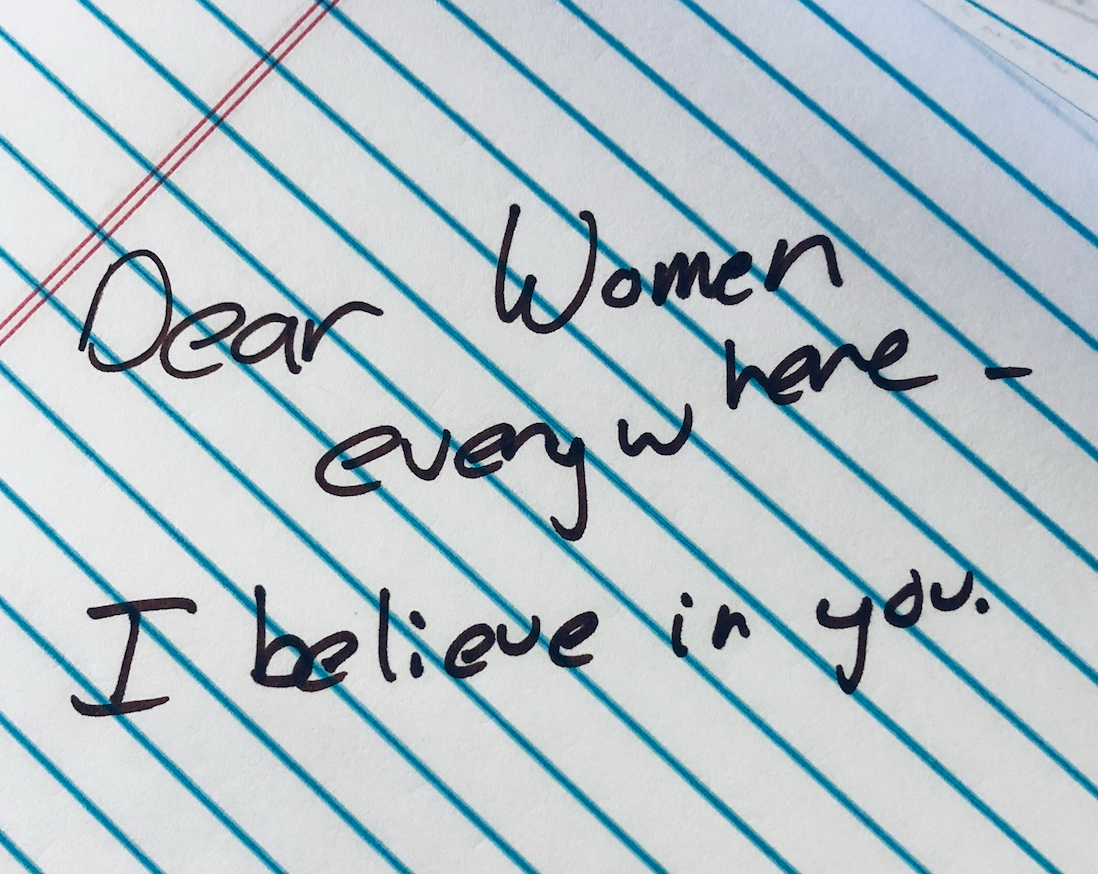 Dear Women
everywhere -
I believe in you.